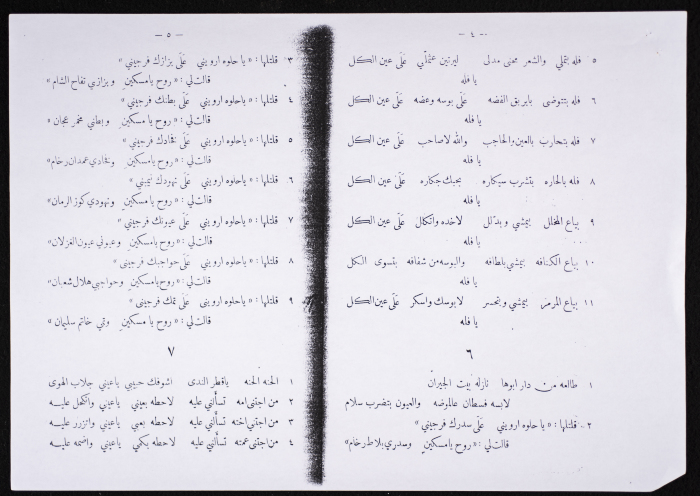 — ٤ —
٥ فله بتملي والشعر محنى مدلى ليرتين عثملّي علّى عين الكل
يا فله
٦ فله بتتوضى بابريق الفضه على بوسه وعضه علّى عين الكل
يا فله
٧ فله بتحارب بالعين والحاجب والله لاصاحب علّى عين الكل
يا فله
٨ فله بالحاره بتشرب سيكاره بحبك جكاره علّى عين الكل
يا فله
٩ بياع المخلل بيمشي وبدلل لاخده واتكلل علّى عين الكل
يا فله
١٠ بياع الكنافه بيمشي بلطافه والبوسه من شفافه بتسوى الكل
يا فله
١١ بياع المرمر بيمشي وبتحسر لابوسك واسكر علّى عين الكل
يا فله
٦
١ طالعه من دار ابوها نازله بيت الجيران
لابسه فسطان عالموضه والعيون بتضرب سلام
٢ قلتلها: «يا حلوه ارويني علّى سدرك فرجيني»
قالت لي: «روح يا مسكين وسدري بلاط رخام»
— ٥ —
٣ قلتلها: «يا حلوه ارويني علّى بزازك فرجيني»
قالت لي: «روح يا مسكين وبزازي تفاح الشام»
٤ قلتلها: «يا حلوه ارويني علّى بطنك فرجيني»
قالت لي: «روح يا مسكين وبطني مخمر عجان»
٥ قلتلها: «يا حلوه ارويني علّى فخادك فرجيني»
قالت لي: «روح يا مسكين وفخادي عمدان رخام»
٦ قلتلها: «يا حلوه ارويني علّى نهودك نيميني»
قالت لي: «روح يا مسكين ونهودي كوز الرمان»
٧ قلتلها: «يا حلوه ارويني علّى عيونك فرجيني»
قالت لي: «روح يا مسكين وعيوني عيون الغزلان»
٨ قلتلها: «يا حلوه ارويني علّى حواجبك فرجيني»
قالت لي: «روح يا مسكين وحواجبي هلال شعبان»
٩ قلتلها: «يا حلوه ارويني علّى تمك فرجيني»
قالت لي: «روح يا مسكين وتمي خاتم سليمان»
٧
١ الحنه الحنه يا قطر الندى اشوفك حبيبي يا عيني جلاب الهوى
٢ من اجتني امه تسألني عليه لاحطه بعيني يا عيني واتكحل عليه
٣ من اجتني اخته تسألني عليه لاحطه بعبي يا عيني واتزرر عليه
٤ من اجتني عمته تسألني عليه لاحطه بكمي يا عيني واضمه عليه